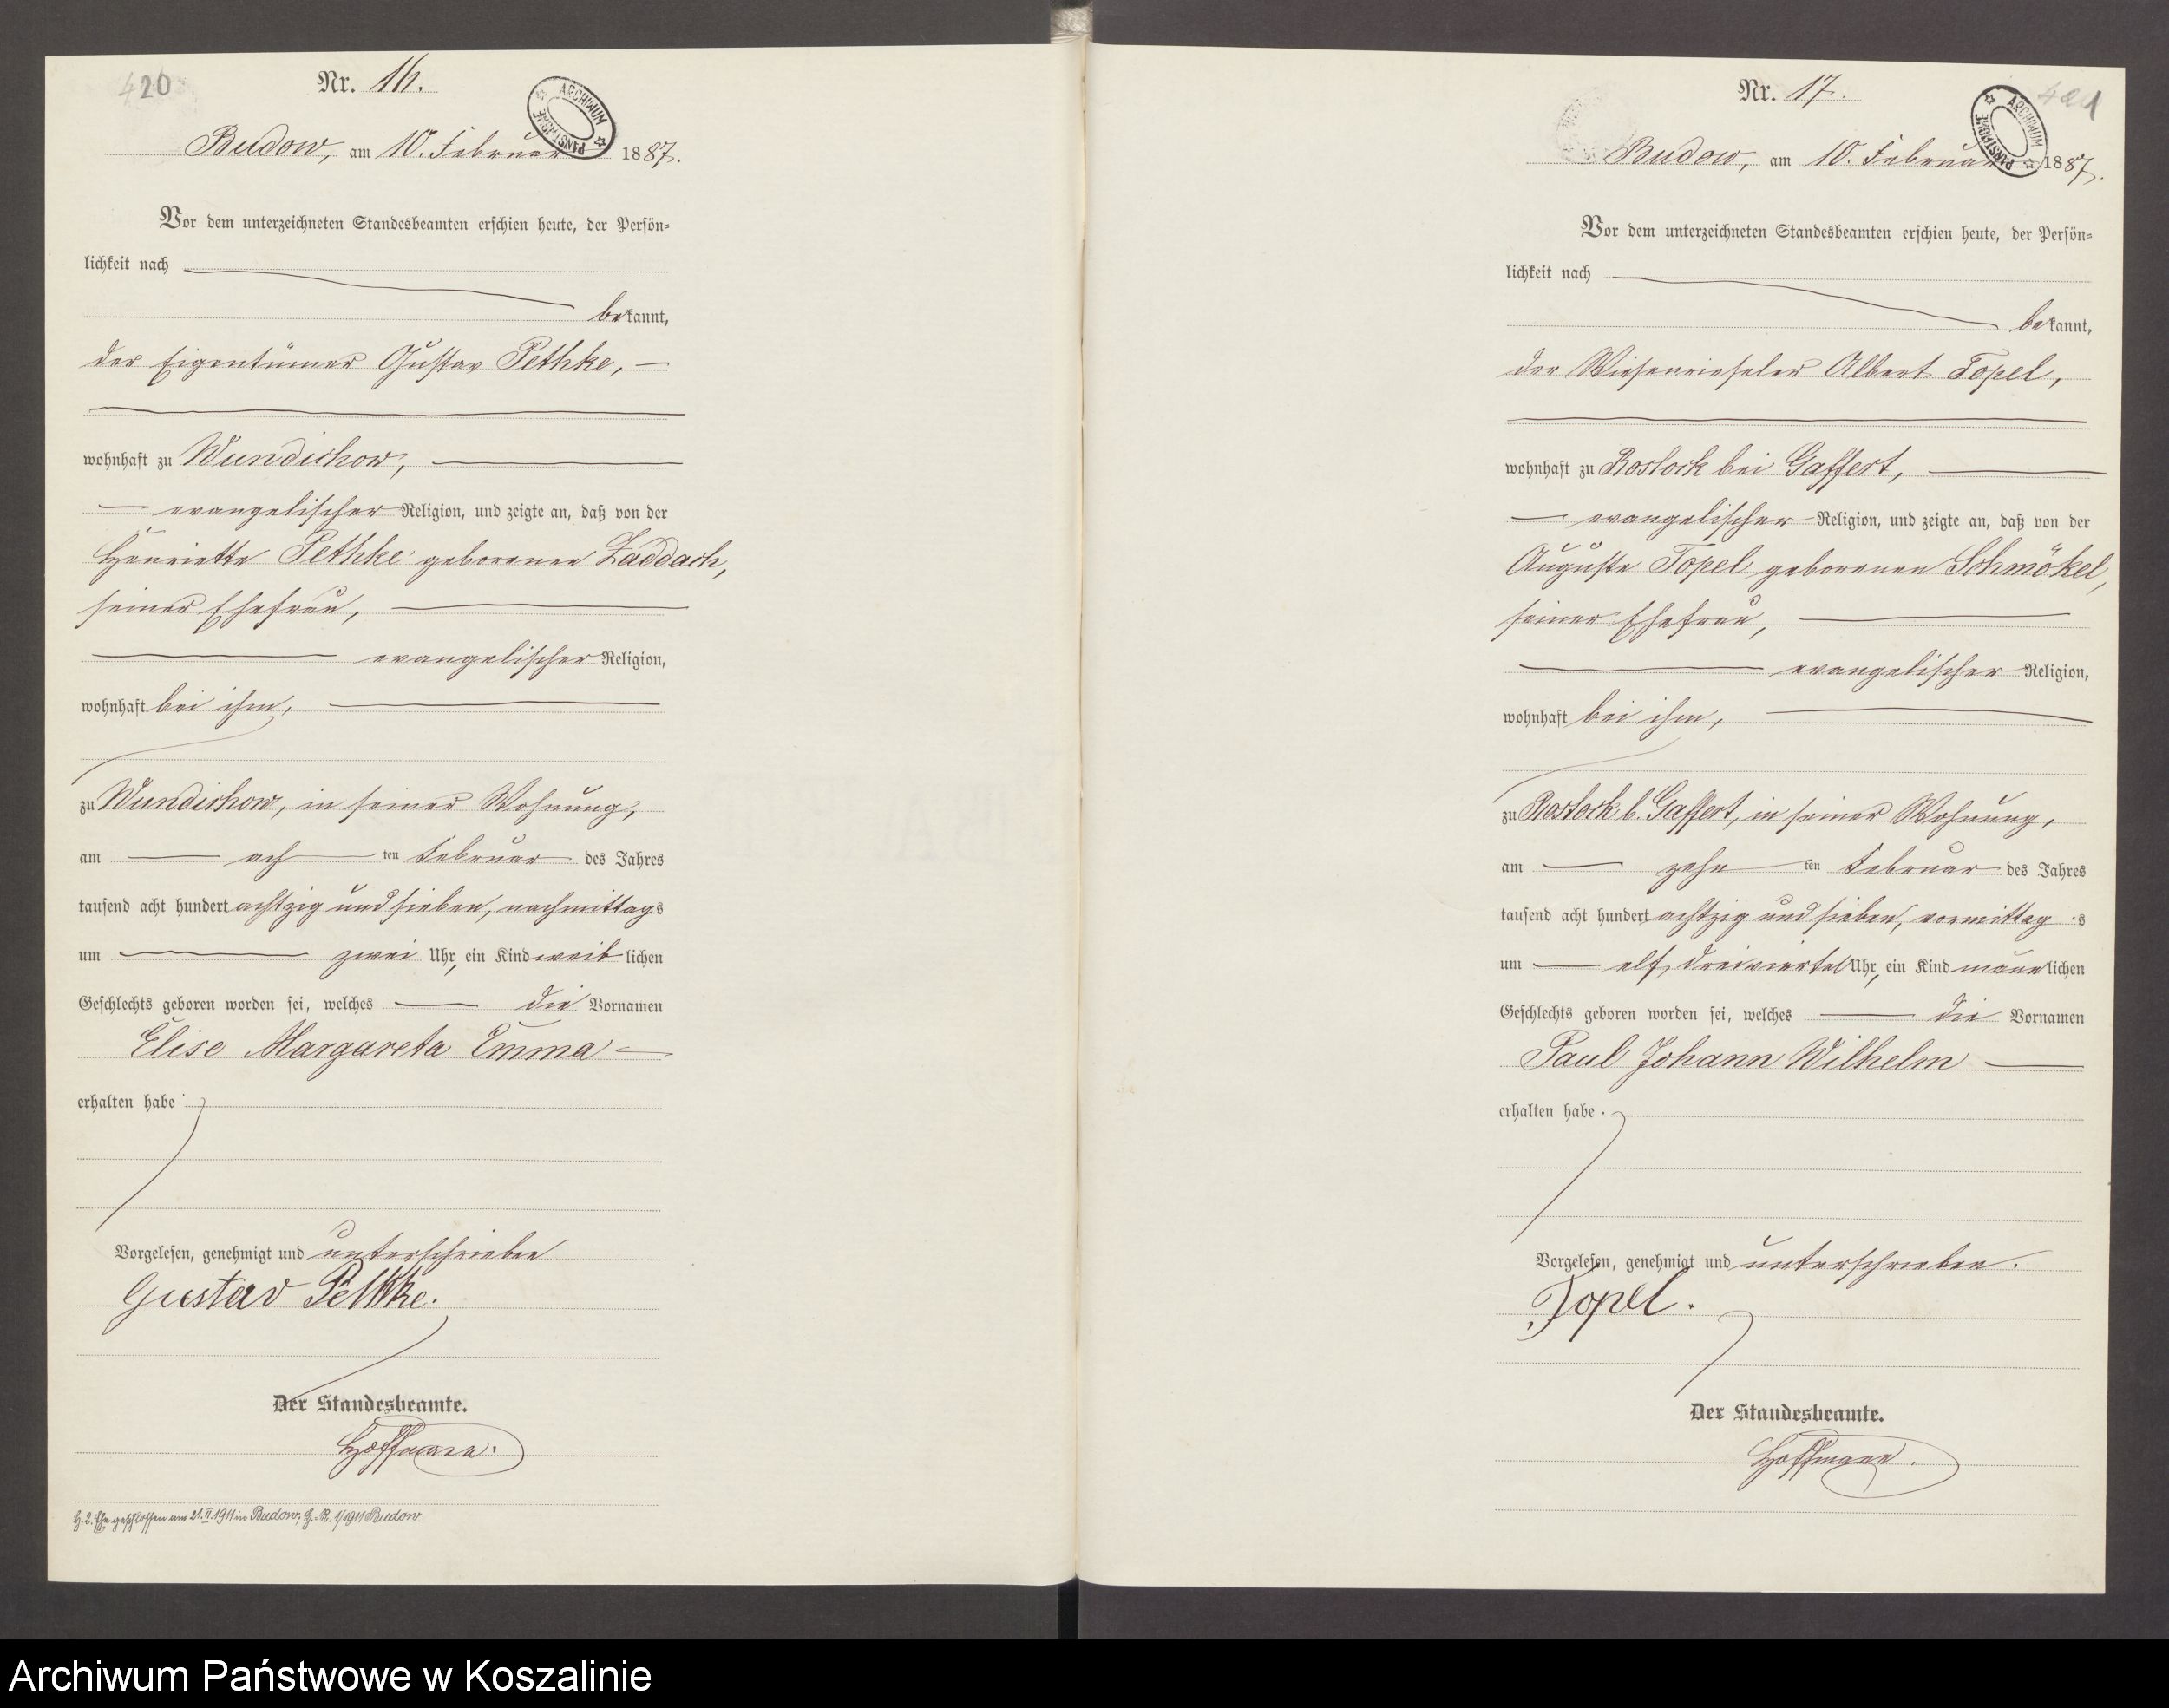 420
Nr. 16.
ARCHIWUM PAŃSTWOWE
Budow, am 10. Februar 1887.
Vor dem unterzeichneten Standesbeamten erschien heute, der Persön-
lichkeit nach
bekannt,
der Eigentümer Gustav Pethke,
wohnhaft zu Wundichow,
evangelischer Religion, und zeigte an, daß von der
Henriette Pethke geborenen Zaddach,
seiner Ehefrau,
evangelischer Religion,
wohnhaft bei ihm,
zu Wundichow, in seiner Wohnung,
am ach ten Februar des Jahres
tausend acht hundert achtzig und sieben, nachmittags
um zwei Uhr, ein Kind weiblichen
Geschlechts geboren worden sei, welches die Vornamen
Elise Margareta Emma
erhalten habe.
Vorgelesen, genehmigt und unterschrieben
Gustav Pethke.
Der Standesbeamte.
Hoffmann.
Z. 2. Ehe geschlossen am 21.II.1911 in Budow, H. R. 1/1911 Budow.
Nr. 17.
421
ARCHIWUM PAŃSTWOWE
Budow, am 10. Februar 1887.
Vor dem unterzeichneten Standesbeamten erschien heute, der Persön-
lichkeit nach
bekannt,
der Wiesenrieseler Albert Topel,
wohnhaft zu Rostock bei Gaffert,
evangelischer Religion, und zeigte an, daß von der
Auguste Topel geborenen Schmökel,
seiner Ehefrau,
evangelischer Religion,
wohnhaft bei ihm,
zu Rostock b. Gaffert, in seiner Wohnung,
am zehn ten Februar des Jahres
tausend acht hundert achtzig und sieben, vormittags
um elf dreiviertel Uhr, ein Kind männlichen
Geschlechts geboren worden sei, welches die Vornamen
Paul Johann Wilhelm
erhalten habe.
Vorgelesen, genehmigt und unterschrieben.
Topel.
Der Standesbeamte.
Hoffmann.
Archiwum Państwowe w Koszalinie